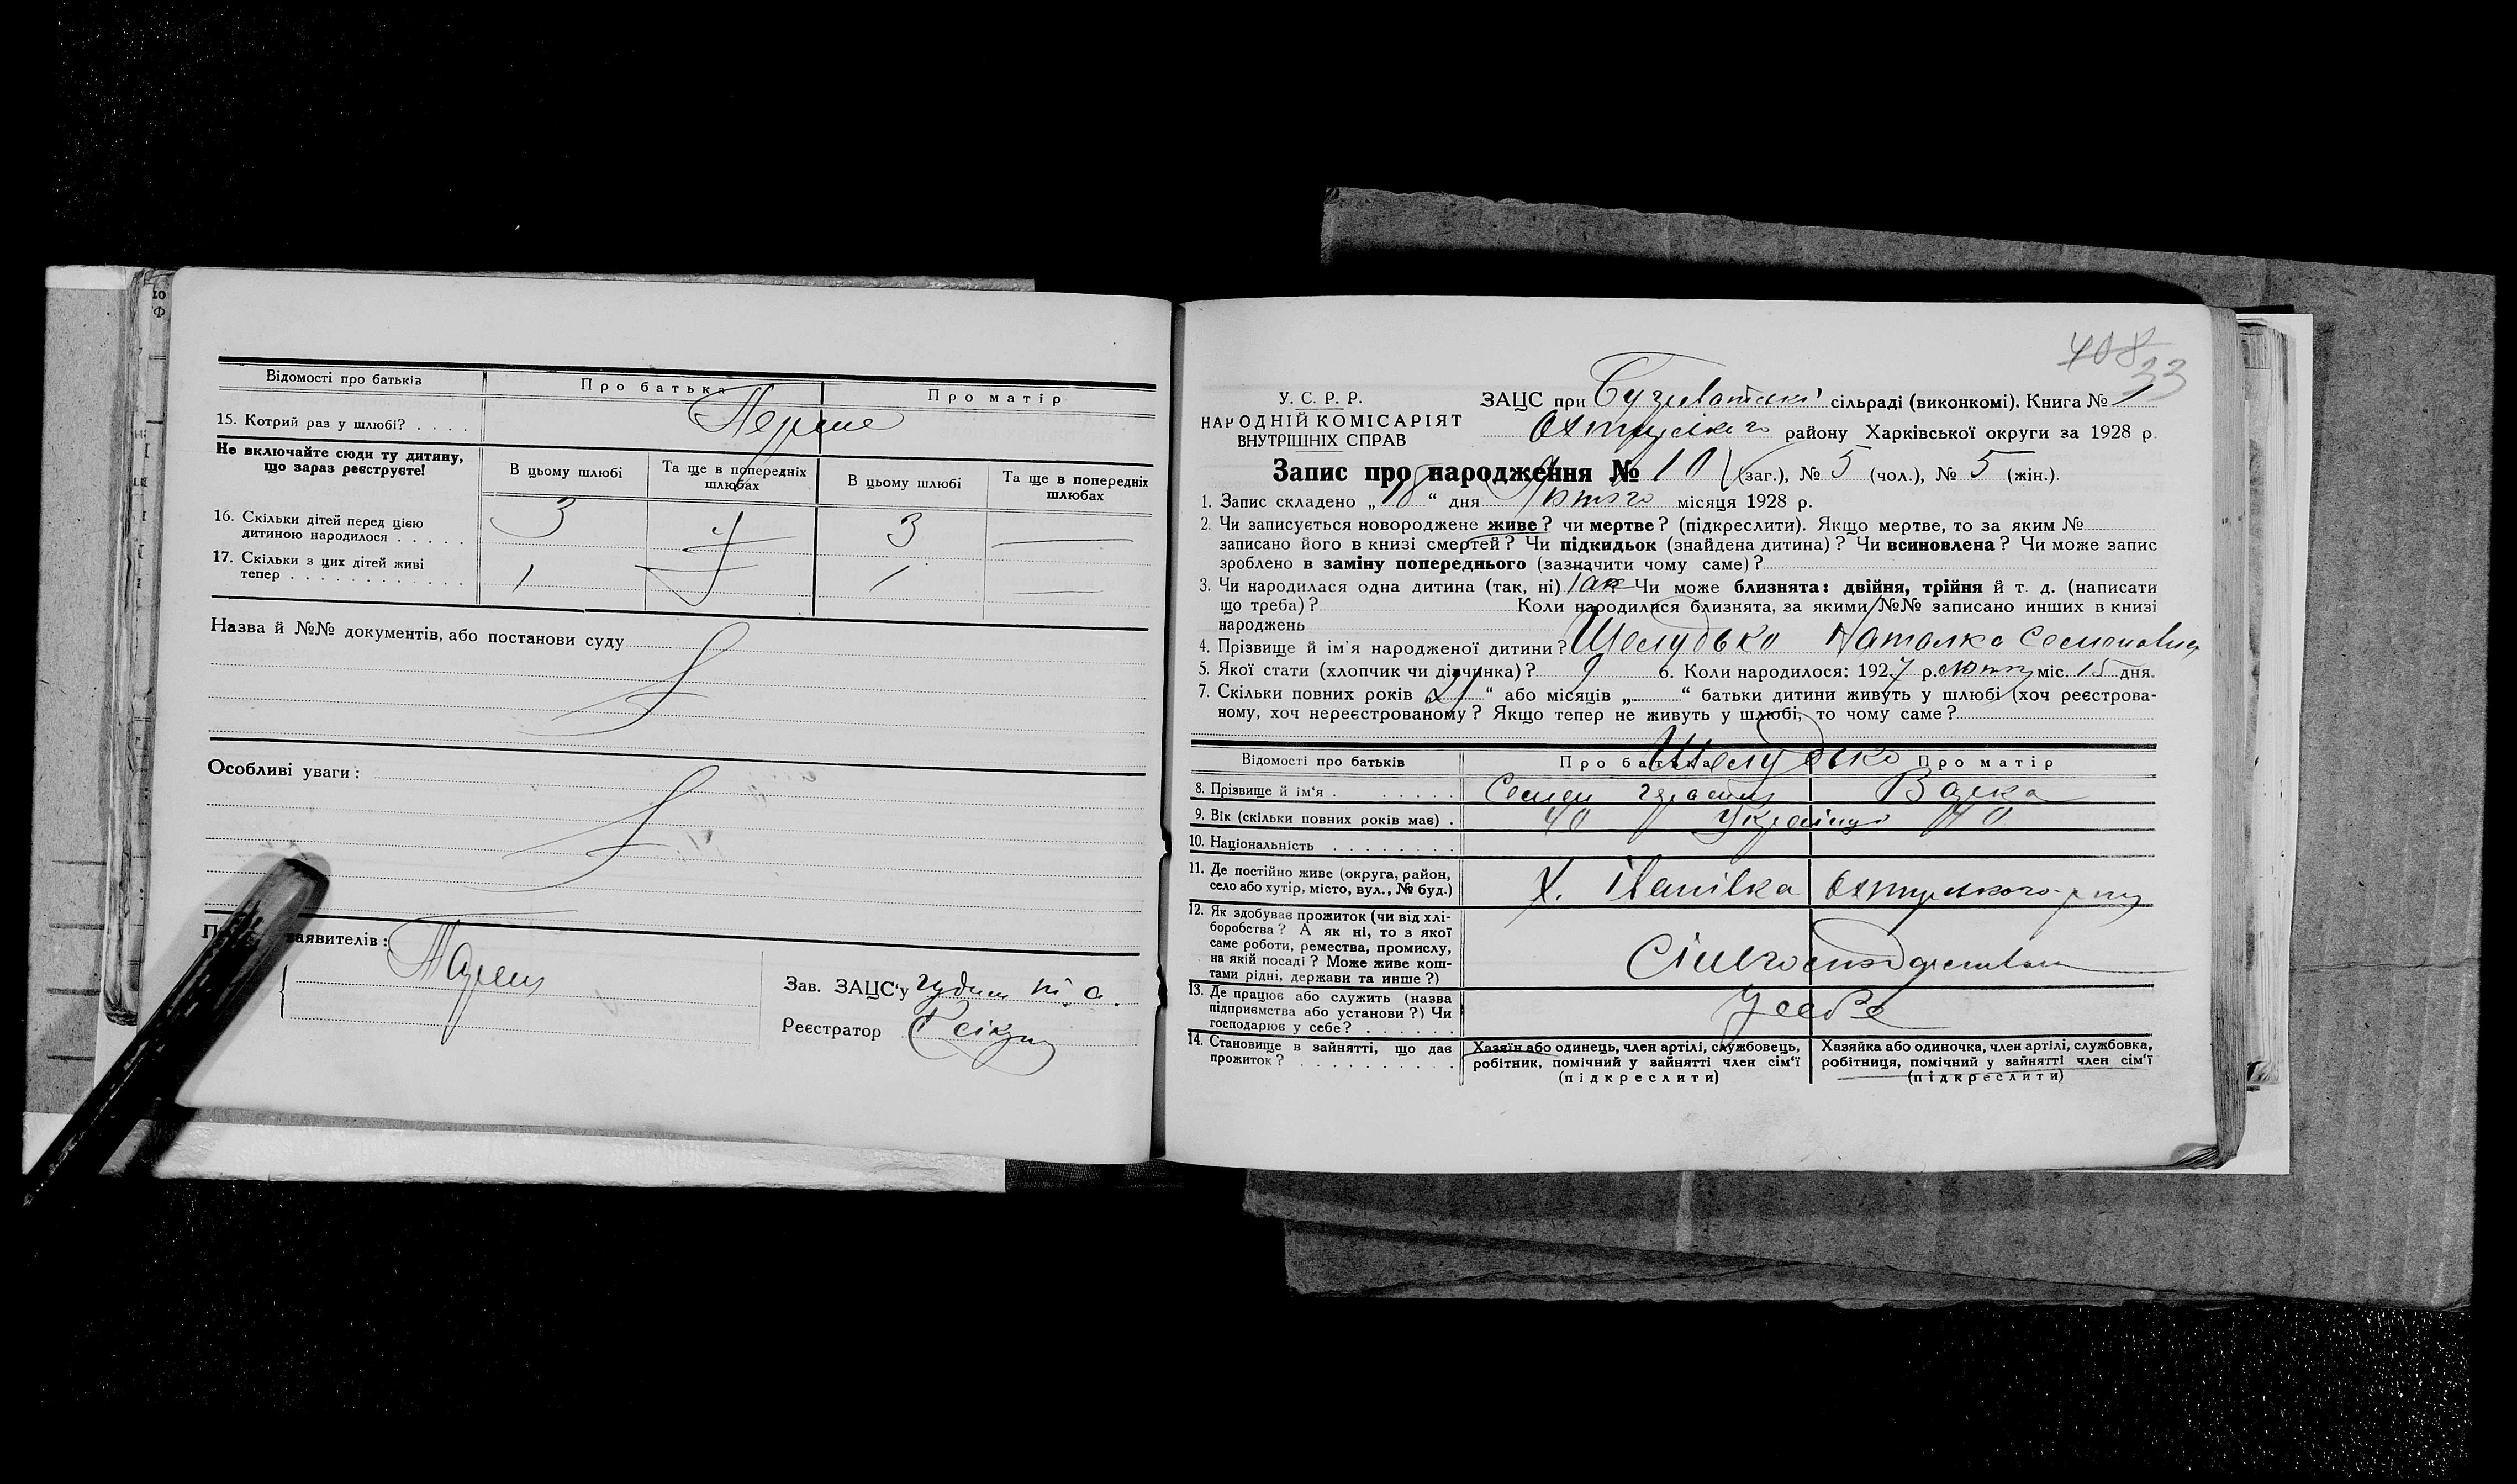 Відомості про батьків
Про батька
Про матір
15. Котрий раз у шлюбі? . . . .
Перше
Не включайте сюди ту дитину, що зараз реєструєте!
В цьому шлюбі
Та ще в попередніх шлюбах
В цьому шлюбі
Та ще в попередніх шлюбах
16. Скільки дітей перед цією
дитиною народилося . . . . .
3
3
17. Скільки з цих дітей живі
тепер . . . . . . . . . . . . .
1
1
Назва й №№ документів, або постанови суду
Особливі уваги:
заявителів:
Зав. ЗАЦС'у
Реєстратор
408
33
У. С. Р. Р.
НАРОДНІЙ КОМІСАРІЯТ
ВНУТРІШНІХ СПРАВ
ЗАЦС при сільраді (виконкомі). Книга № 1
району Харківської округи за 1928 р.
Запис про народження № 10 (заг.), № 5 (чол.), № 5 (жін.).
1. Запис складено „18“ дня Лютого місяця 1928 р.
2. Чи записується новороджене живе? чи мертве? (підкреслити). Якщо мертве, то за яким №
записано його в книзі смертей? Чи підкидьок (знайдена дитина)? Чи всиновлена? Чи може запис
зроблено в заміну попереднього (зазначити чому саме)?
3. Чи народилася одна дитина (так, ні) Так Чи може близнята: двійня, трійня й т. д. (написати
що треба)? Коли народилися близнята, за якими №№ записано инших в книзі
народжень
4. Прізвище й ім'я народженої дитини? Шелудько Наталка Семеновна
5. Якої стати (хлопчик чи дівчинка)? 6. Коли народилося: 1927 р. міс. 15 дня.
7. Скільки повних років „21“ або місяців „ “ батьки дитини живуть у шлюбі (хоч реєстрова-
ному, хоч нереєстрованому? Якщо тепер не живуть у шлюбі, то чому саме?
Відомості про батьків
Про батька
Про матір
Шелудько
8. Прізвище й ім'я . . . . . . .
9. Вік (скільки повних років має) .
40
Українці
40
10. Національність . . . . . . . .
11. Де постійно живе (округа, район,
село або хутір, місто, вул., № буд.)
Х. Іванівка
12. Як здобуває прожиток (чи від хлі-
боробства? А як ні, то з якої
саме роботи, ремества, промислу,
на якій посаді? Може живе кош-
тами рідні, держави та инше?)
13. Де працює або служить (назва
підприємства або установи?) Чи
господарює у себе? . . . . . .
У себе
14. Становище в зайнятті, що дає
прожиток? . . . . . . . . . . .
Хазяїн або одинець, член артілі, службовець,
робітник, помічний у зайнятті член сім'ї
(підкреслити)
Хазяйка або одиночка, член артілі, службовка,
робітниця, помічний у зайнятті член сім'ї
(підкреслити)